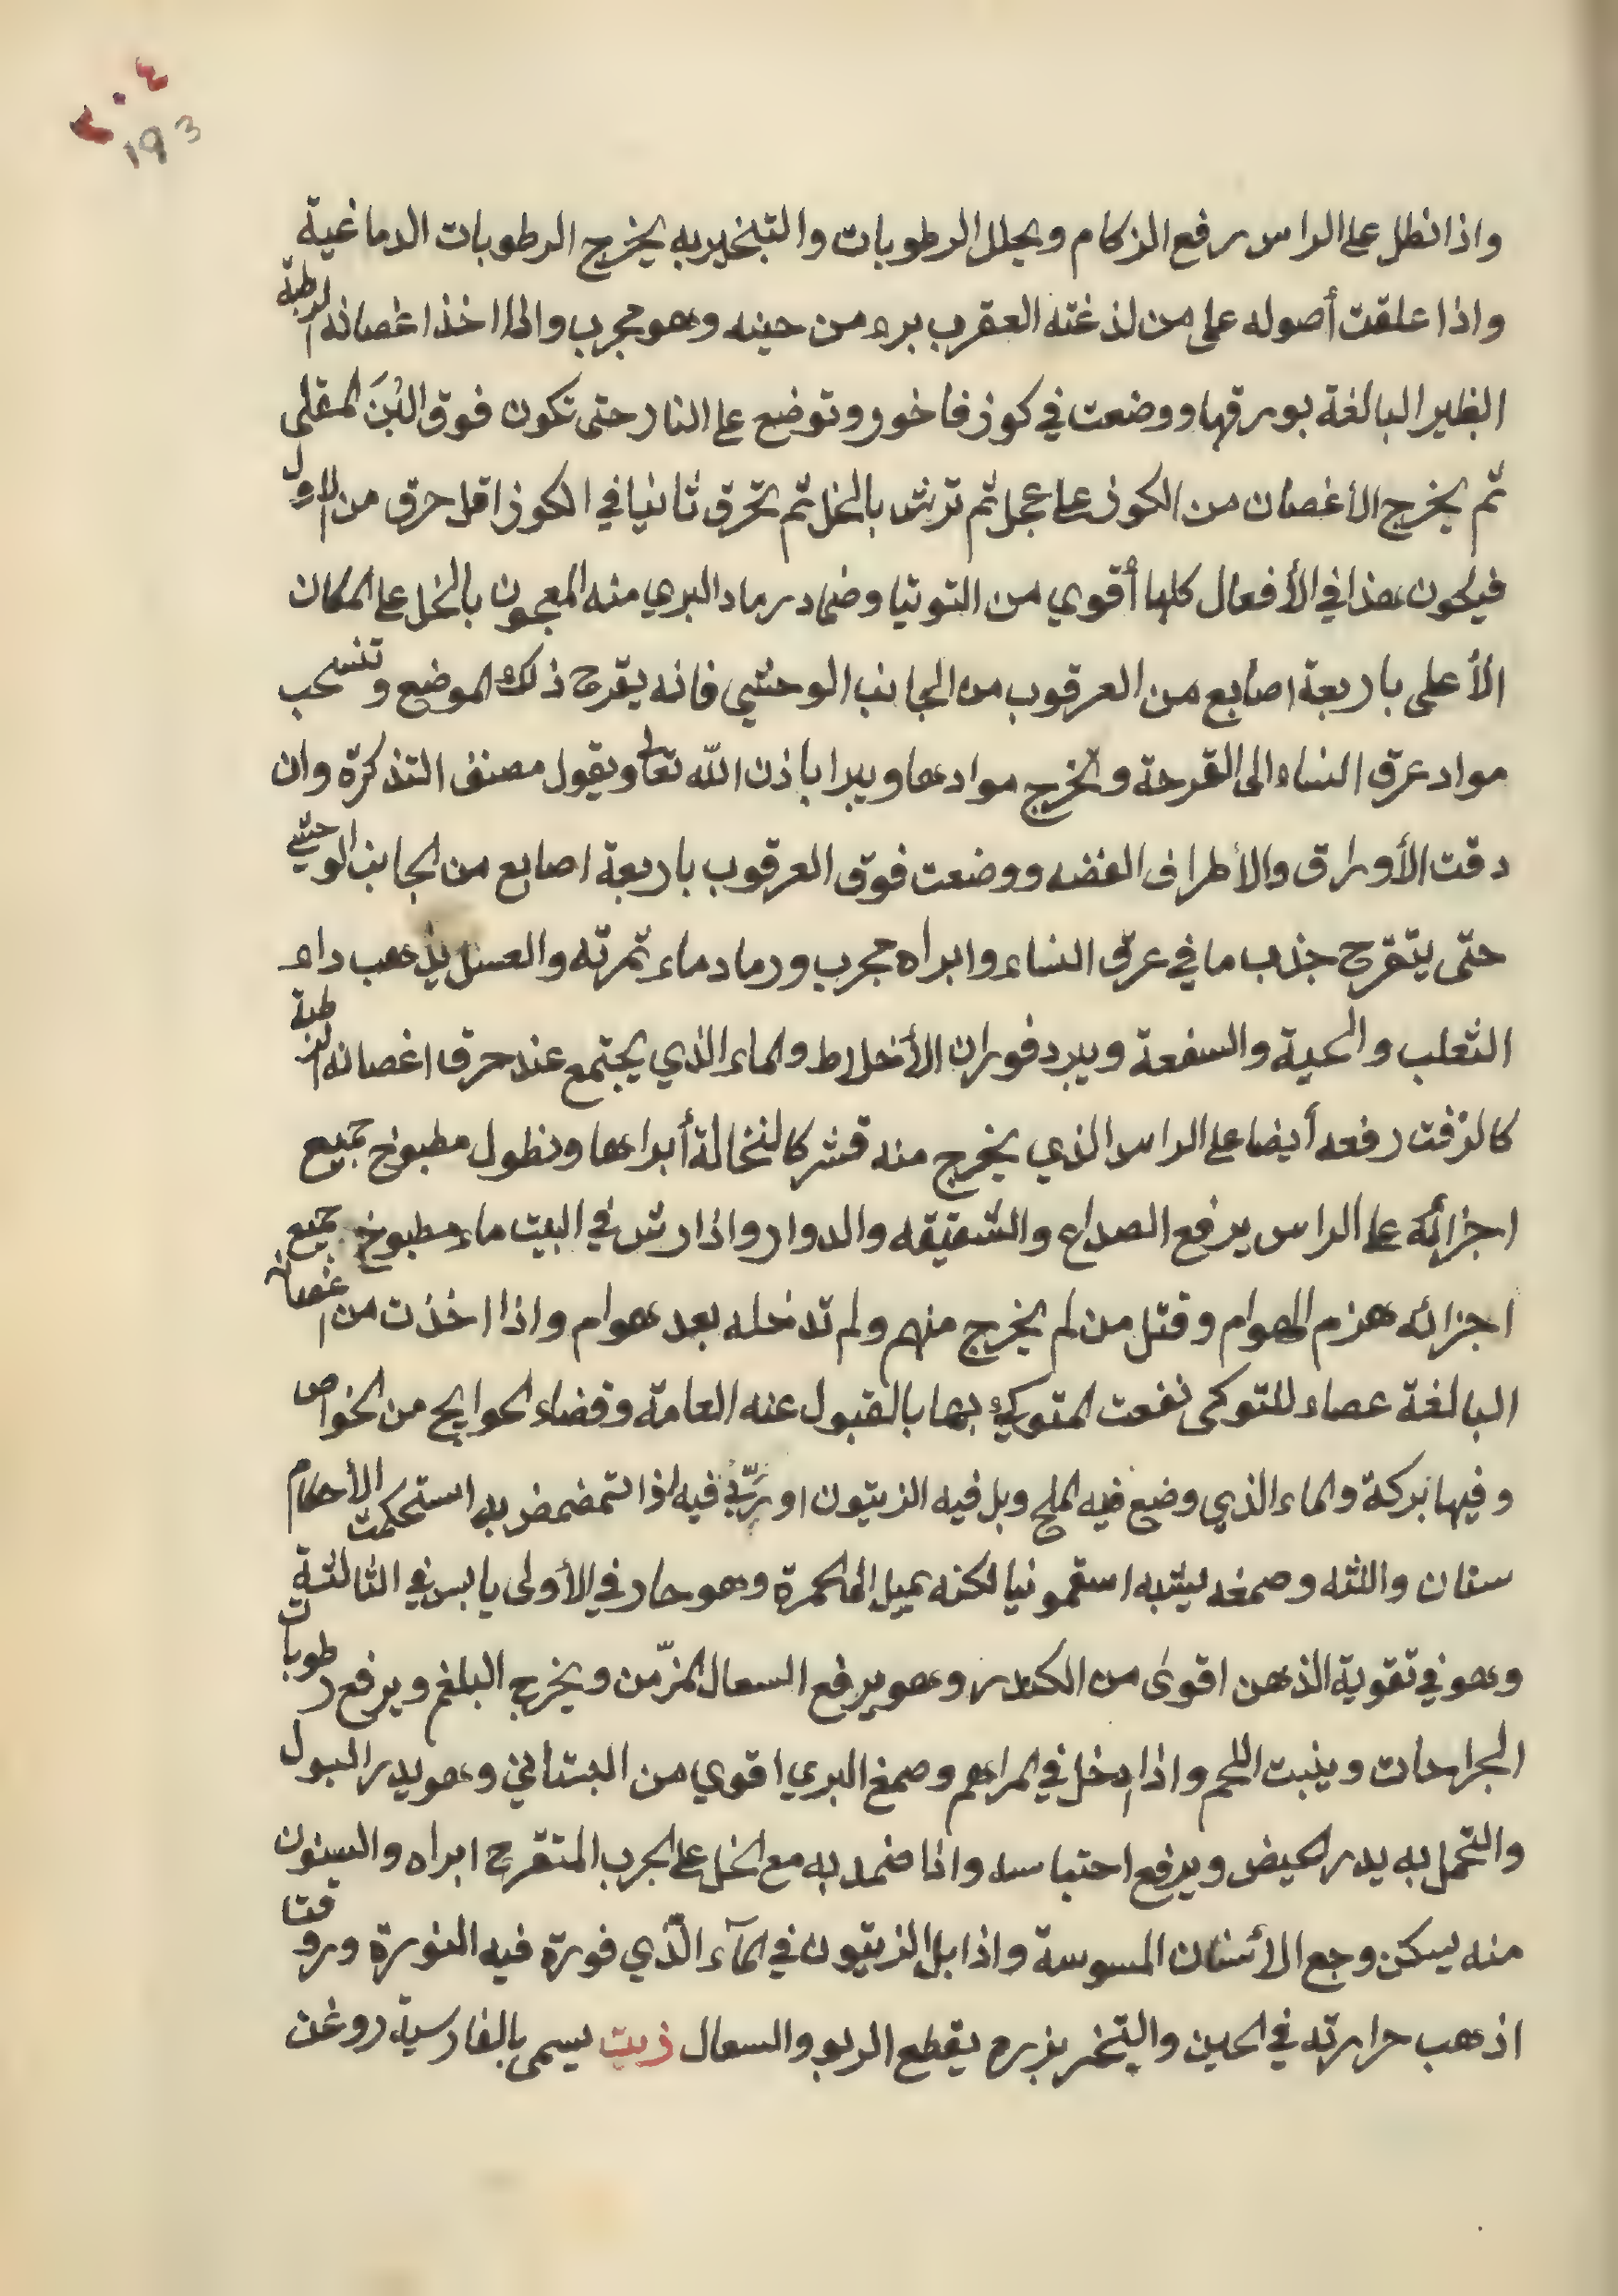 ٢٠٤
193
واذا نطل على الراس رفع الزكام ويحلل الرطوبات والتبخير به يخرج الرطوبات الدماغية
واذا علقت أصوله على من لذغته العقرب برء من حينه وهو مجرب واذا اخذ اغصانه الرطبة
الغلير البالغة بورقها ووضعت في كوز فاخور وتوضع على النار حتى تكون فوق البُنَ المقلى
ثم يخرج الاغصان من الكوز على عجل ثم ترش بالخل ثم تحرق ثانيا في الكوز اقل حرق من الاول
فيكون هذا في الأفعال كلها أقوي من التوتيا وضماد رماد البري منه المعجون بالخل على المكان
الأعلى باربعة اصابع من العرقوب من الجانب الوحشي فانه يقرح ذلك الموضع وتنسحب
مواد عرق النساء الى القرحة وتخرج موادها ويبرا باذن الله تعالى ويقول مصنف التذكرة وان
دقت الأوراق والأطراف الغضه ووضعت فوق العرقوب باربعة اصابع من الجانب الوحشي
حتى يتقرح جذب ما في عرق النساء وابراه مجرب ورماد ماء ثمرته والعسل يذهب داء
الثعلب والحية والسفعة ويبرد فوران الأخلاط والماء الذي يجتمع عند حرق اغصانه الرطبة
كالزفت رفعه أيضا على الراس الذي يخرج منه قشر كالنخالة أبراها ونطول مطبوخ جميع
اجزائه على الراس يرفع الصداع والشقيقه والدوار واذا رش في البيت ماء مطبوخ جميع
اجزائه هزم الهوام وقتل من لم يخرج منهم ولم تدخله بعد هوام واذا اخذت من اغصان
البالغة عصاء للتوكى نفعت المتوكي بها بالقبول عنه العامة وقضاء الحوايج من الخواص
وفيها بركة والماء الذي وضع فيه الملح وبل فيه الزيتون او رَبّي فيه اذا تمضمض به استحكمت الأحكام
سنان واللثه وصمغه يشبه اسقمونيا لكنه يميل الى الحمرة وهو حار في الأولى يابس في الثالثة
وهو في تقوية الذهن اقوى من الكندر وهو يرفع السعال المزّمن ويخرج البلغم ويرفع رطوبات
الجراحات وينبت اللحم واذا ادخل في المراهم وصمغ البري اقوي من البستاني وهو يدر البول
والتحمل به يدر الحيض ويرفع احتباسه واذا ضمد به مع الخل على الجرب المتقرح ابراه والسنون
منه يسكن وجع الأسنان المسوسة واذا بل الزيتون في المآء الّذي فورة فيه النورة وروقتا
اذهب حرارته في الحين والتبخر بزره يقطع الربو والسعال زيت يسمى بالفارسية روغن